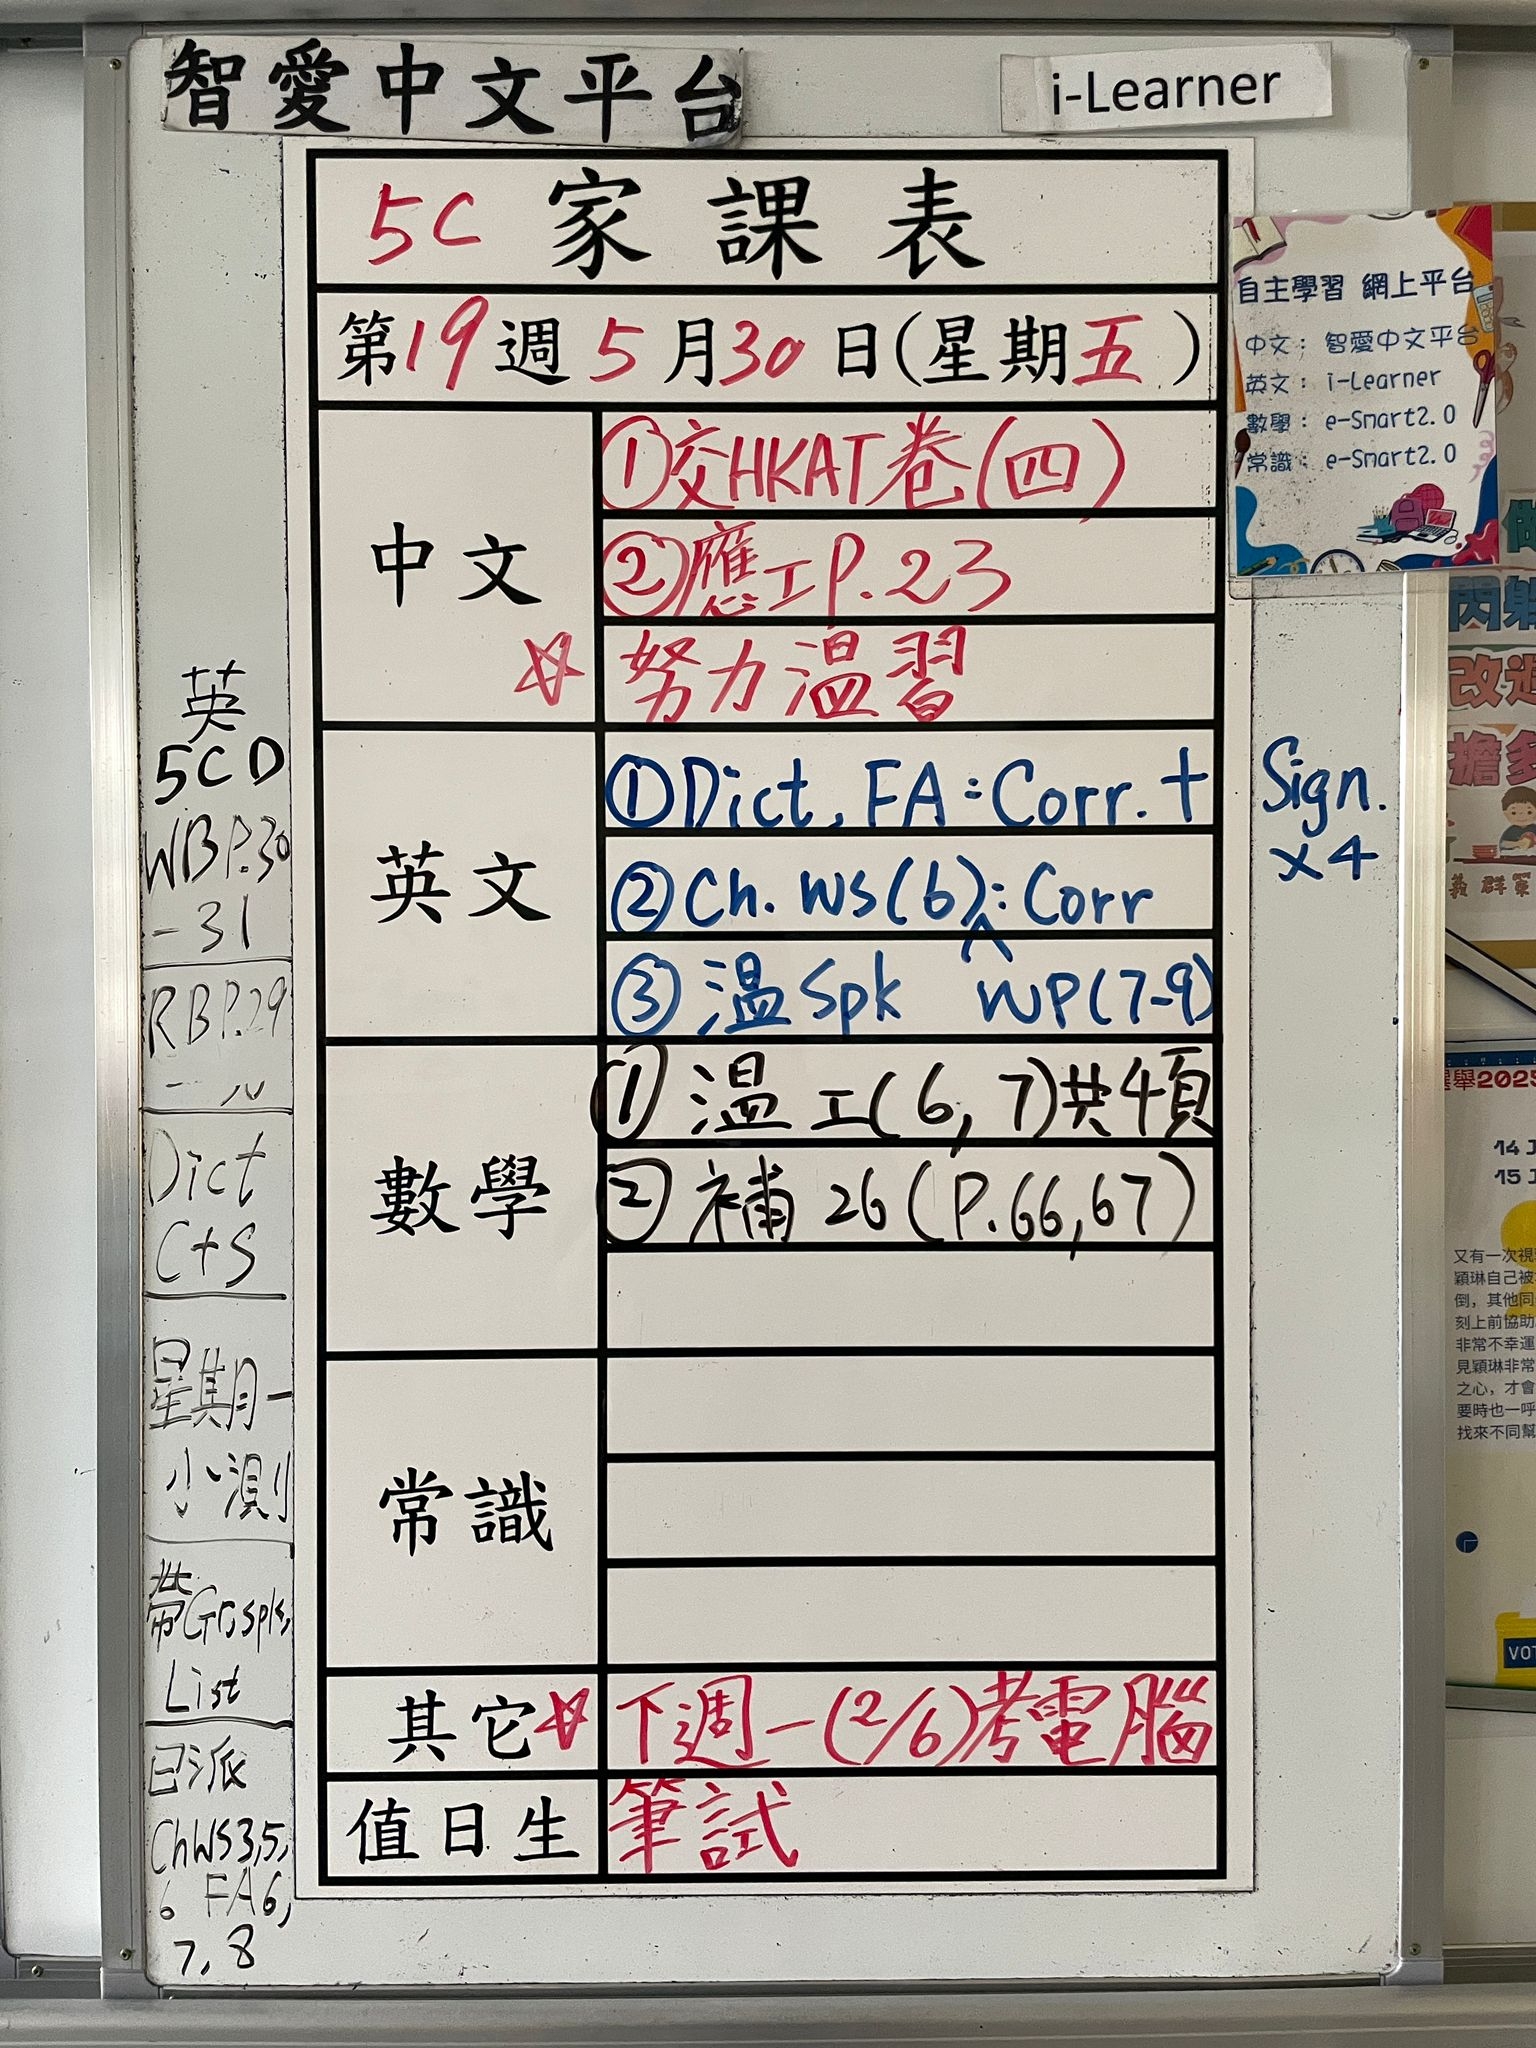 智愛中文平台
i-Learner
5C 家課表
第19週5月30日(星期五)
中文
①交HKAT卷(四)
②應工P.23
☆努力溫習
英文
①Dict, FA:Corr.+ Sign. x4
②Ch. WS(6)^:Corr
WP(7-9)
③溫Spk
數學
①溫工(6,7)共4頁
②補26(P.66,67)
常識
其它
☆下週一(2/6)考電腦
值日生
筆試
英
5CD
WBP.30
-31
RBP.29
Dict
C+S
星期一
小測
帶Gr,spk,
List
已派
ChWS3,5,
6 FA6,
7,8
自主學習 網上平台
中文： 智愛中文平台
英文： i-Learner
數學： e-Smart2.0
常識： e-Smart2.0
閃躲
改過
擔多
義群策
舉2025
14 J
15 J
又有一次視
穎琳自己被
倒，其他同
刻上前協助
非常不幸運
見穎琳非常
之心，才會
要時也一呼
找來不同幫
VOT